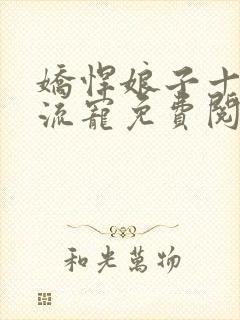 嬌悍娘子十
流寵免費閱
和光萬物